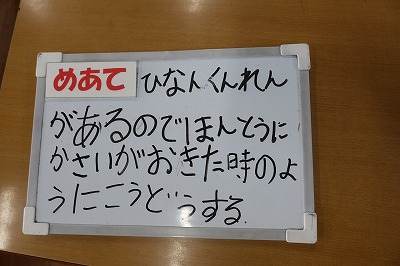 めあて ひなんくんれん
があるのでほんとうに
かさいがおきた時のよ
うにこうどうする.